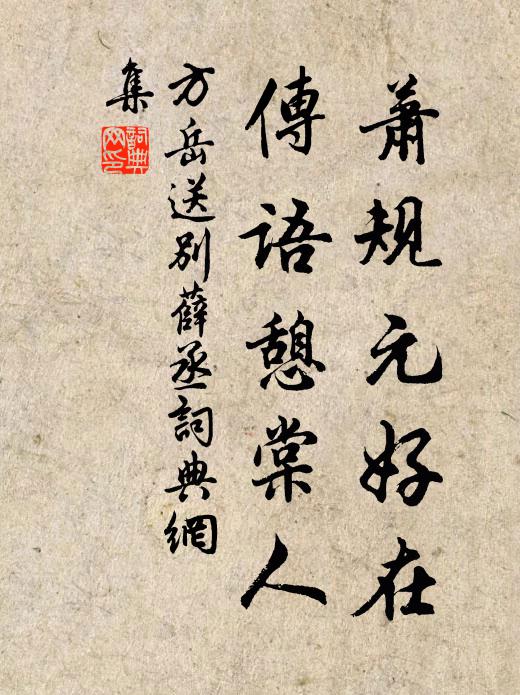 蕭規元好在
傳語憩棠人
方岳送別薛丞詞典網
集
詞典网印